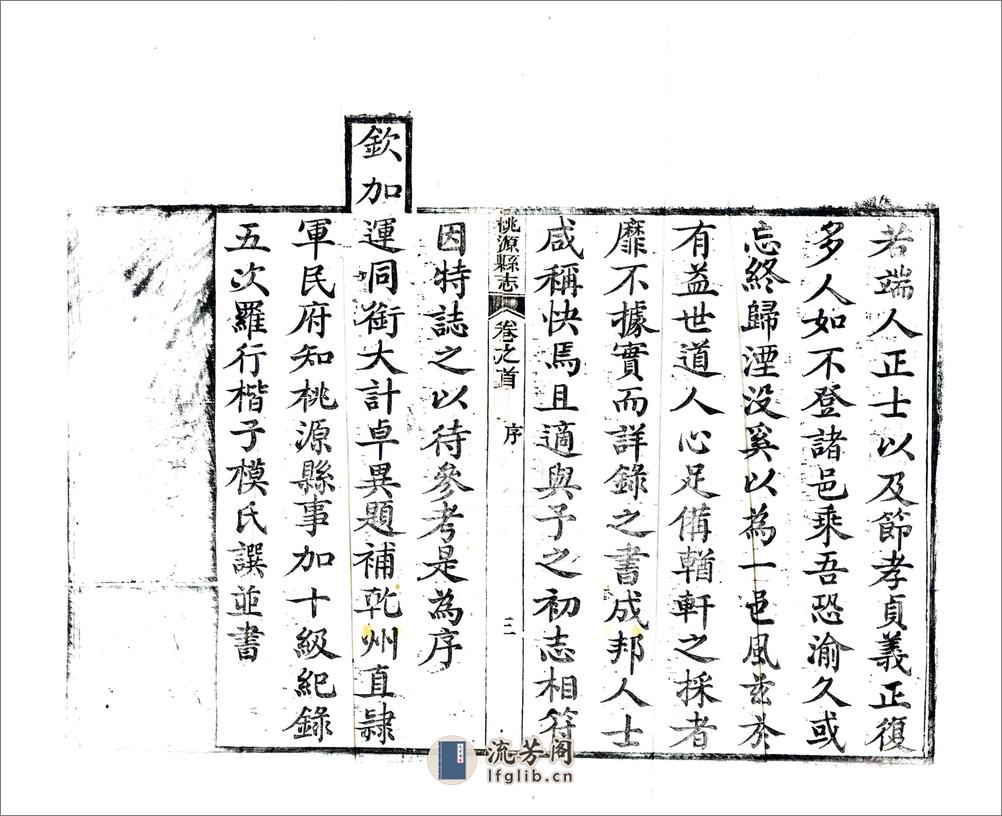 若端人正士以及節孝貞義正復
多人如不登諸邑乘吾恐渝久或
忘終歸湮没奚以為一邑風茲於
有益世道人心足備輶軒之採者
靡不據實而詳錄之書成邦人士
咸稱快焉且適與予之初志相符
桃源縣志 卷之首 序 三
因特誌之以待參考是為序
欽加運同銜大計卓異題補乾州直隷
軍民府知桃源縣事加十級紀錄
五次羅行楷子模氏譔並書
流芳阁
lfglib.cn